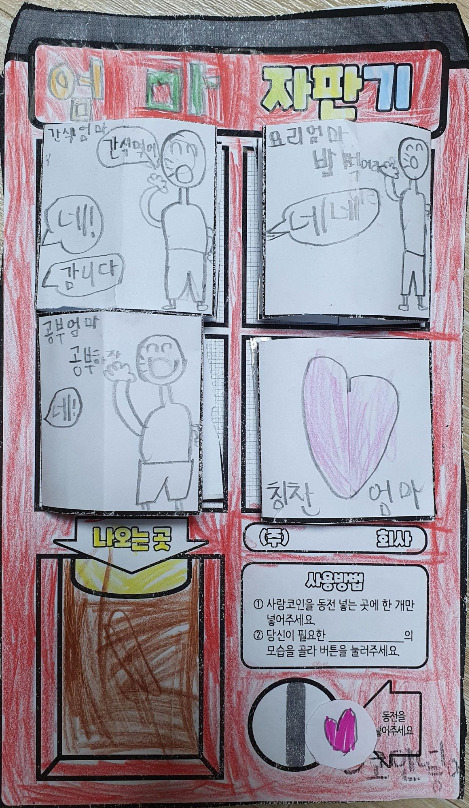 엄마 자판기
간식엄마
간식먹어
네!
갑니다
요리엄마
밥
네네
공부엄마
공부하장
네!
칭찬 엄마
나오는 곳
(주) 회사
사용방법
① 사랑코인을 동전 넣는 곳에 한 개만
넣어주세요.
② 당신이 필요한 ____________의
모습을 골라 버튼을 눌러주세요.
동전을
넣어주세요